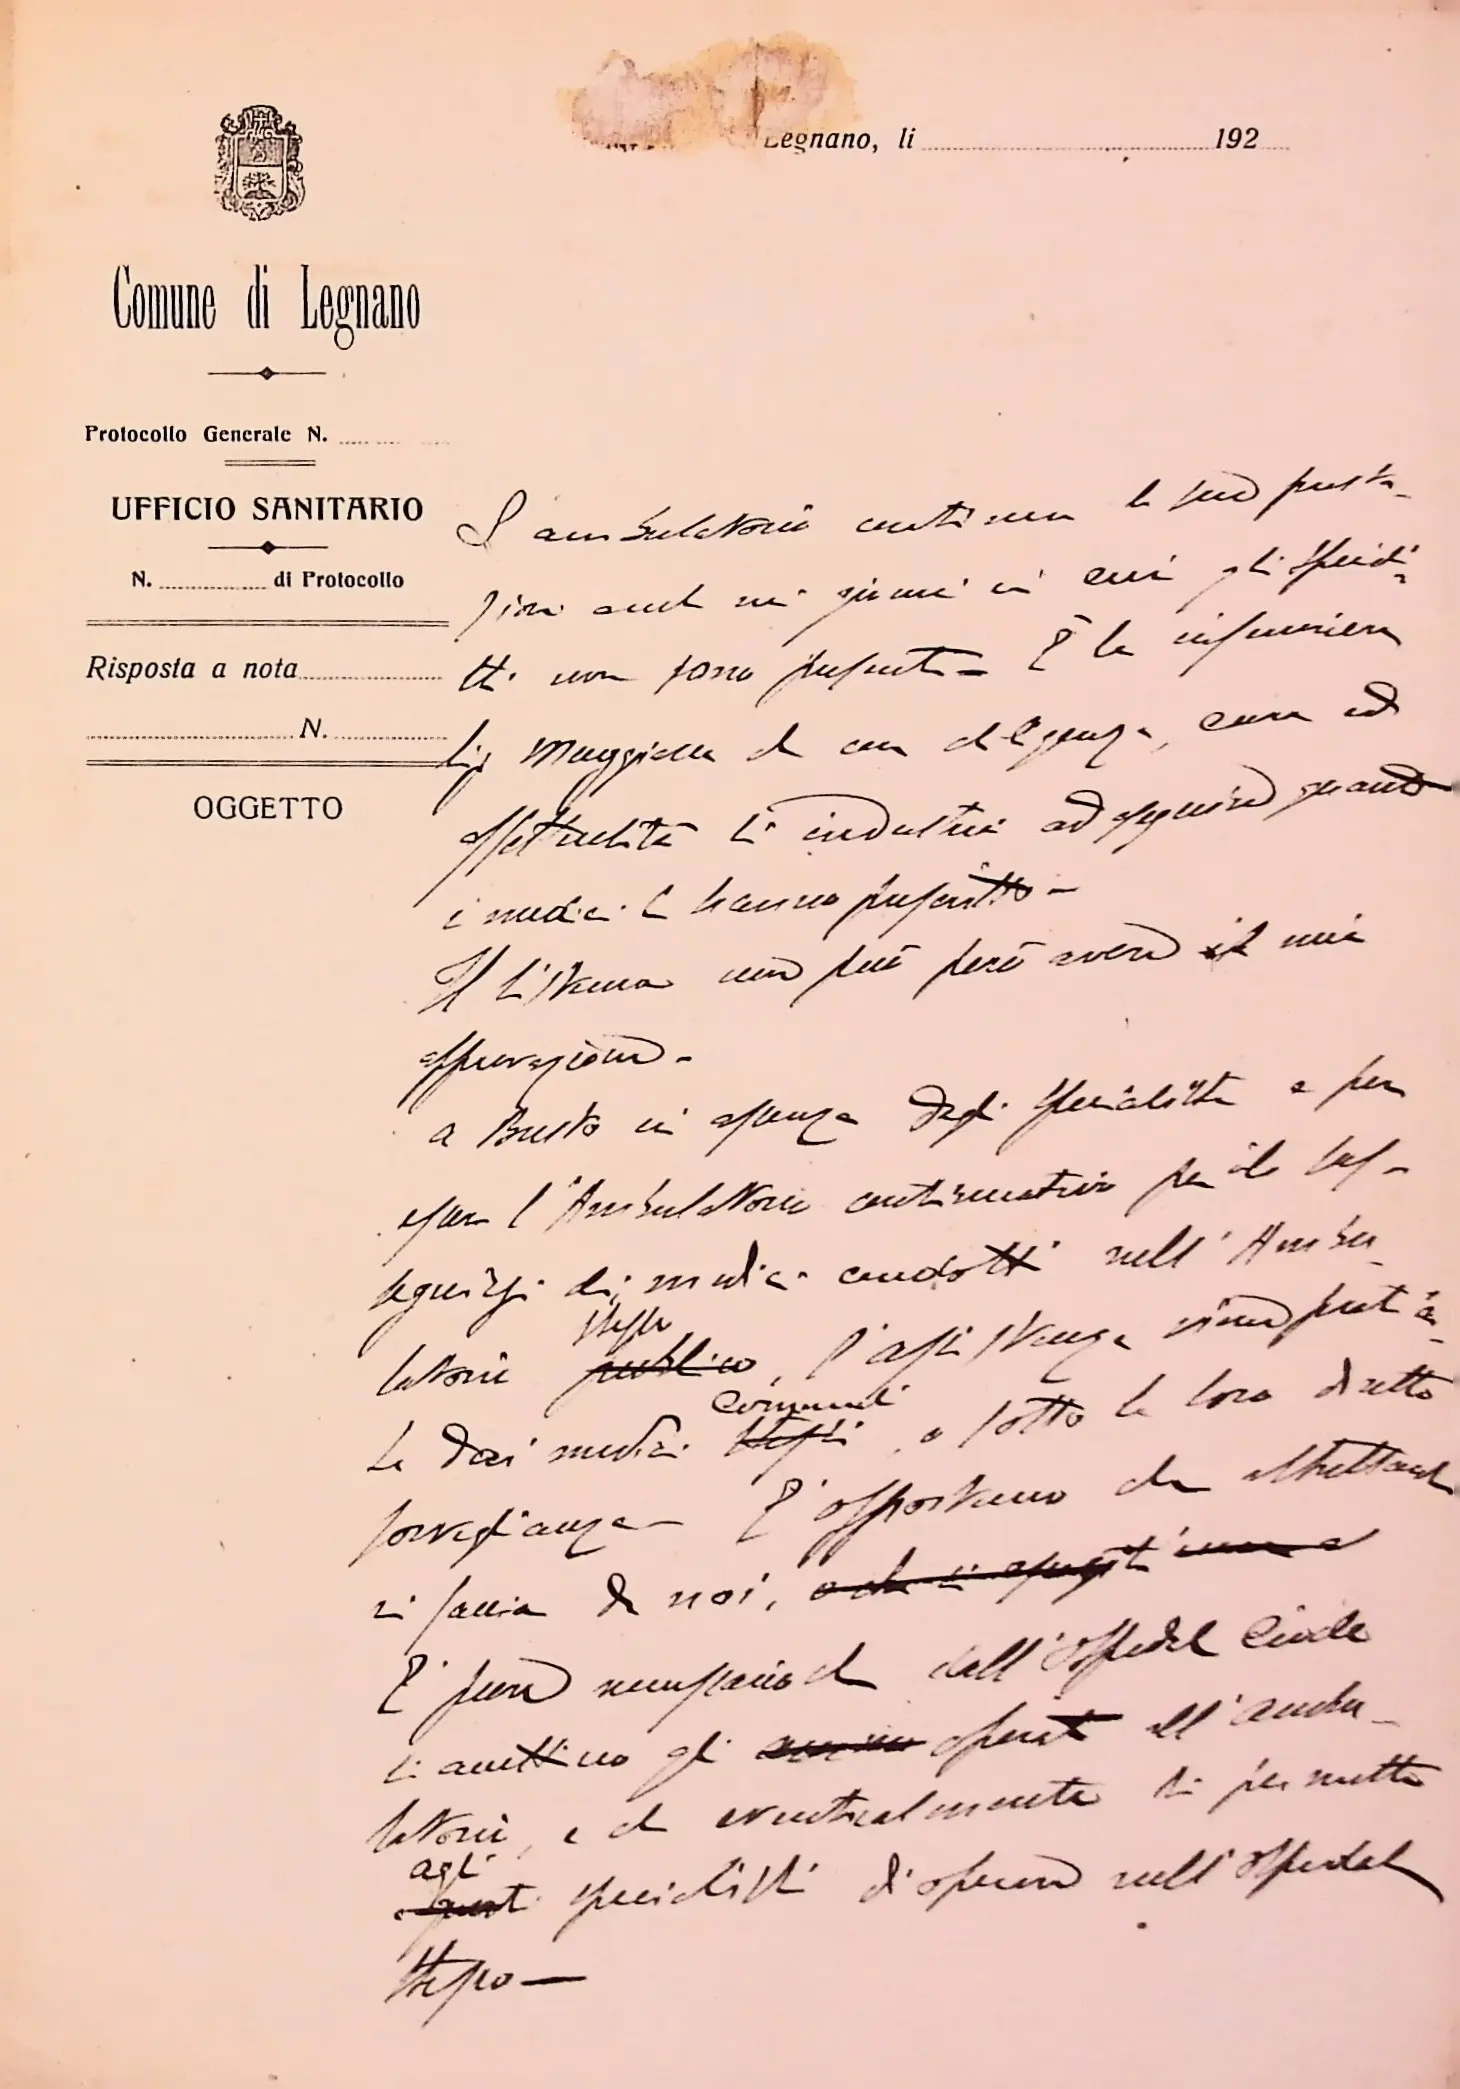 Legnano, li 192
Comune di Legnano
Protocollo Generale N.
UFFICIO SANITARIO
N. di Protocollo
Risposta a nota
N.
OGGETTO
L'ambulatorio continua la sua presta-
zione anche nei giorni in cui gli speciali-
sti non sono presenti - È la infermiera
che con diligenza, cura ed
si industria ad eseguire quanto
i medici le hanno prescritto -
Il sistema non può però avere il mio
approvazione -
a Busto in assenza degli specialisti e per
l'Ambulatorio continuativo per
dei medici condotti nell'Ambu-
latorio stesse pubblico, l'assistenza viene presta-
ta dai medici Comunali stessi, o sotto la loro diretta
sorveglianza - È opportuno che altrettanto
si faccia da noi,
È pure necessario che dall'Ospedale Civile
si ammettino gli operati all'ambu-
latorio, e che eventualmente si permetta
agli specialisti di operare nell'Ospedale
stesso -